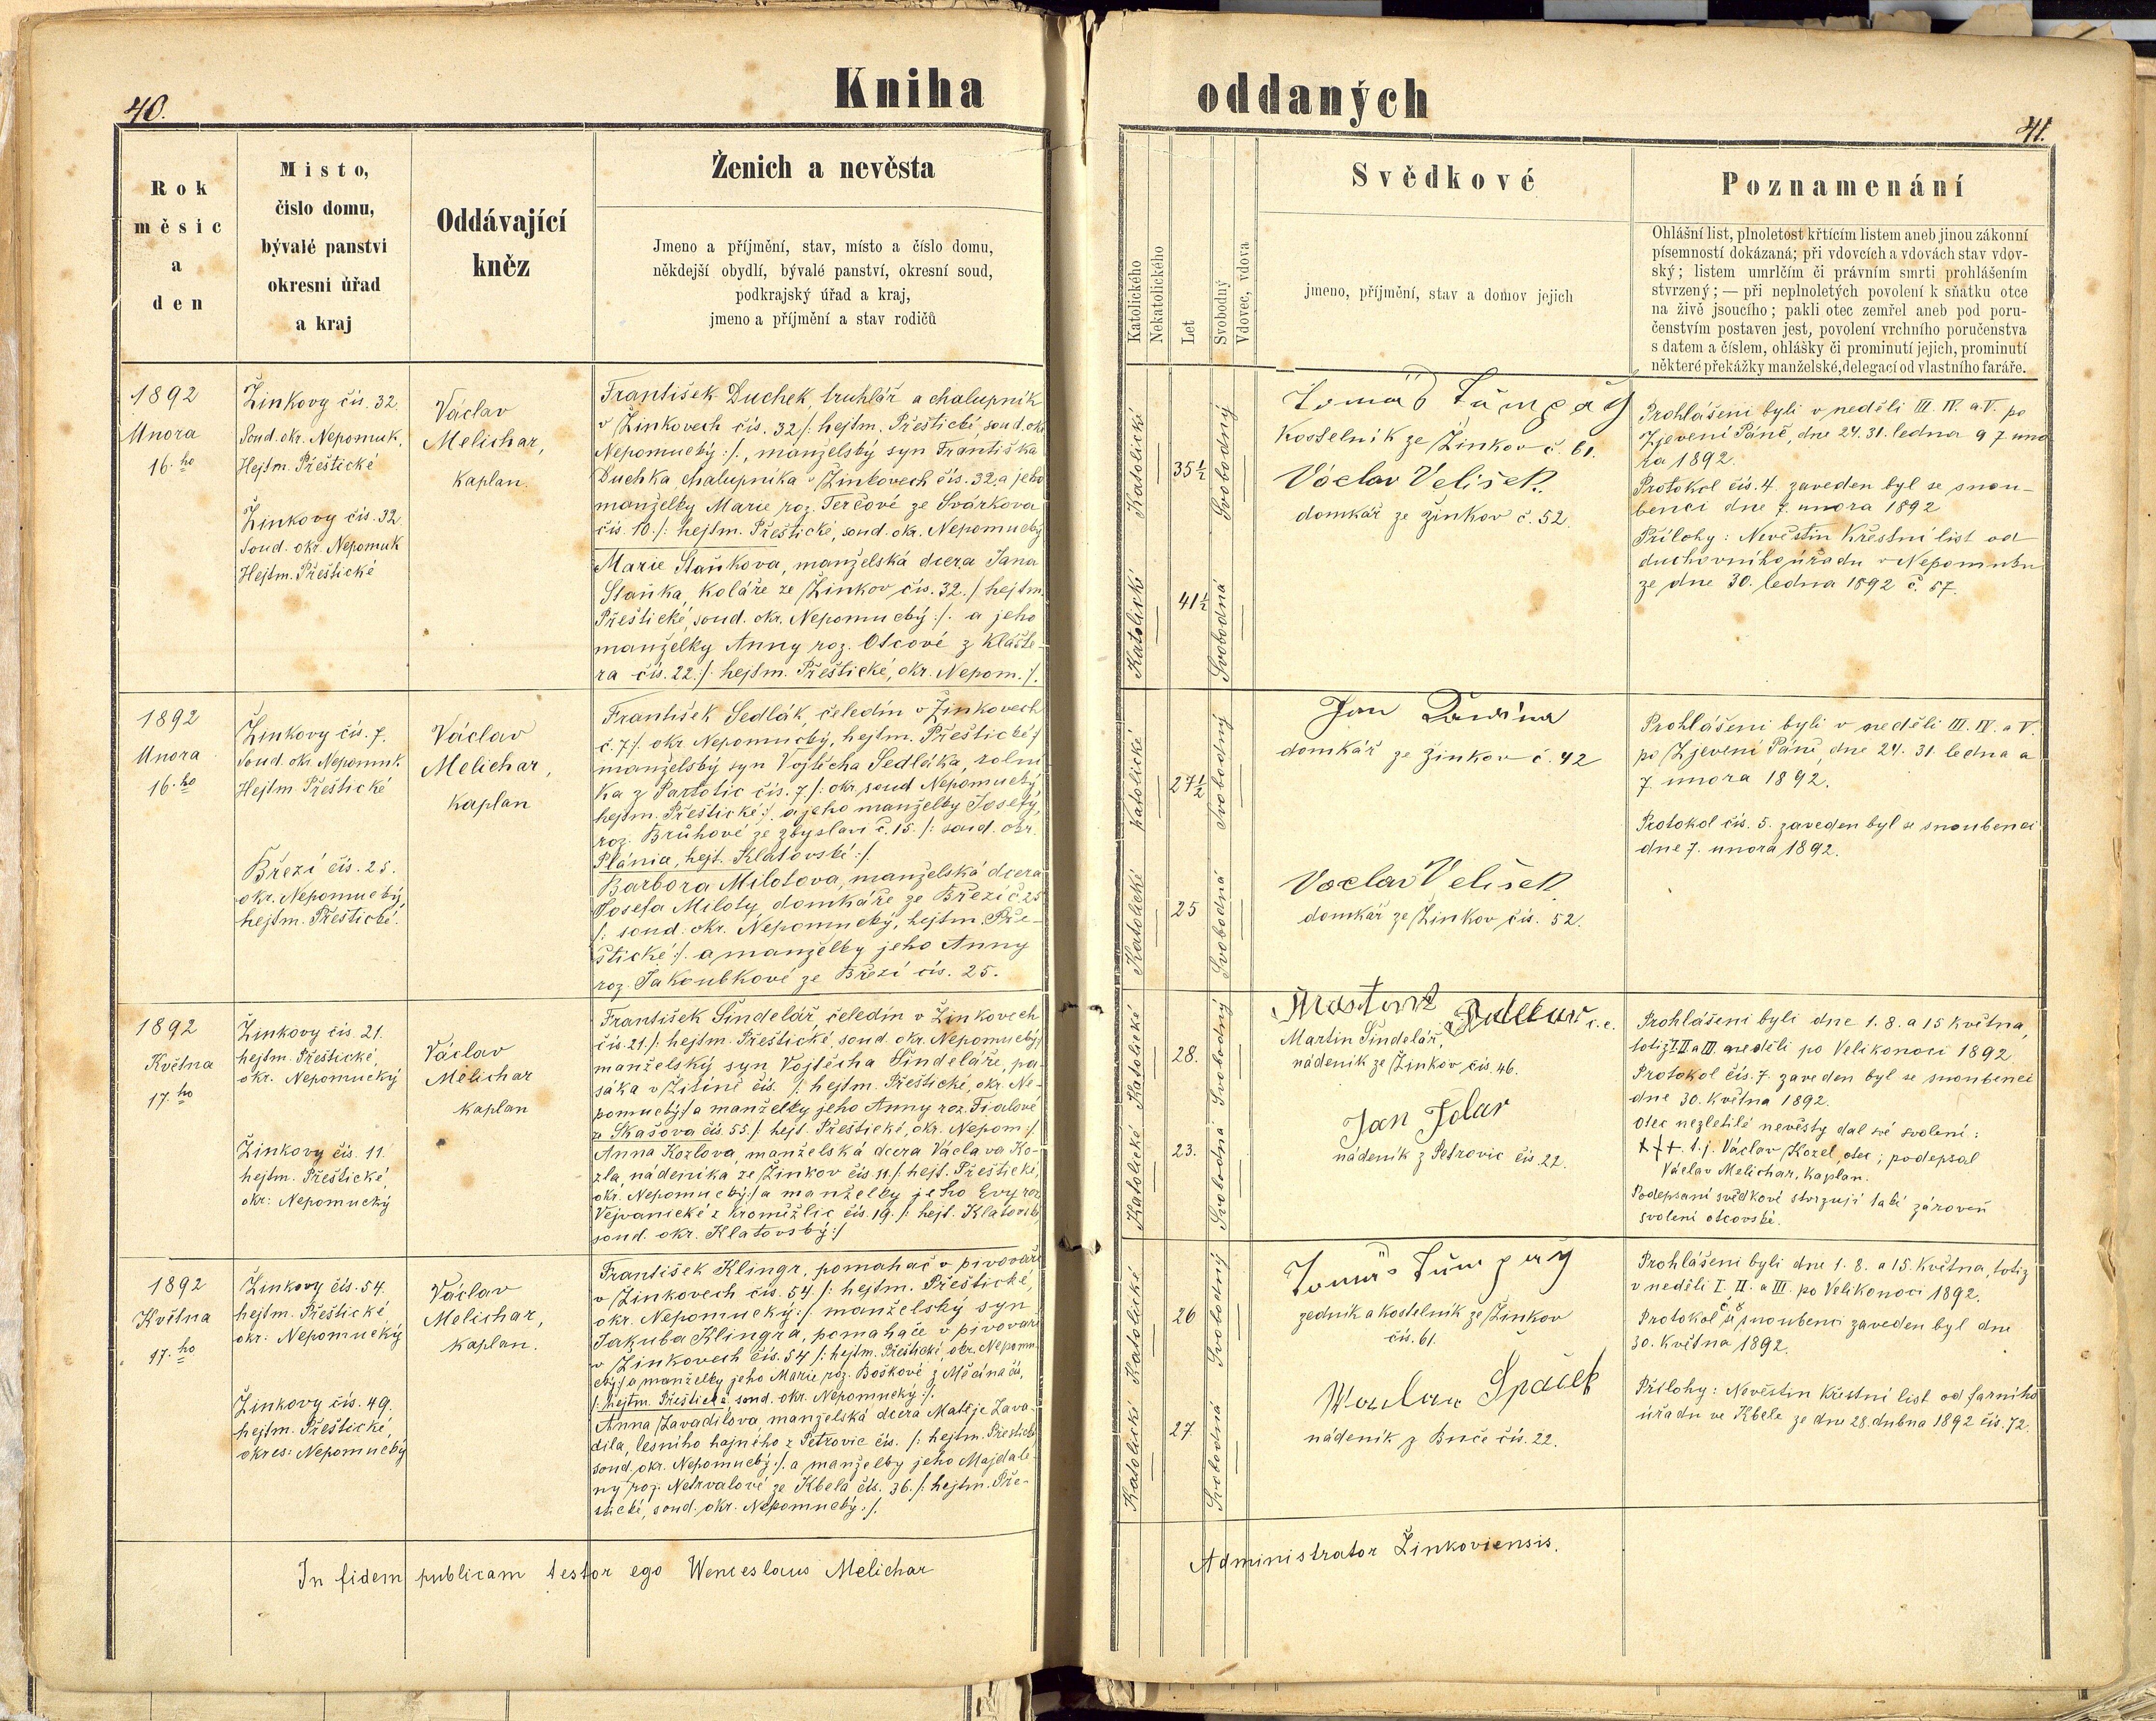 40.
Kniha
Rok
měsic
a
den
Misto,
čislo domu,
bývalé panstvi
okresni úřad
a kraj
Oddávající
kněz
Ženich a nevěsta
Jmeno a příjmění, stav, místo a číslo domu,
někdejší obydlí, bývalé panství, okresní soud,
podkrajský úřad a kraj,
jmeno a příjmění a stav rodičů
1892
Února
16. ho
Žinkovy čís. 32.
Soud. okr. Nepomuk,
Hejtm. Přeštické
Žinkovy čis. 32.
Soud. okr. Nepomuk
Hejtm. Přeštické
Václav
Melichar,
Kaplan.
František Duchek, truhlář a chalupník
v Žinkovech čís. 32 /: hejtm. Přeštické, soud. okr.
Nepomucký :/., manželský syn Františka
Duchka chalupníka v Žinkovech čís. 32, a jeho
manželky Marie roz. Terčové ze Svárkova
čís. 10. /: hejtm. Přeštické, soud. okr. Nepomucký
Marie Staňkova, manželská dcera Jana
Staňka, Koláře ze Žinkov čís. 32. /: hejtm.
Přeštické, soud. okr. Nepomucký :/. a jeho
manželky Anny roz. Otcové z Klášte-
ra čís. 22. /: hejtm. Přeštické, okr. Nepom. :/.
1892
Února
16. ho
Žinkovy čís. 7.
Soud. okr. Nepomuk
Hejtm Přeštické
Březí čís. 25.
okr. Nepomucký,
hejtm. Přeštické.
Václav
Melichar,
Kaplan
František Sedlák, čeledín v Žinkovech
č. 7 /: okr. Nepomucký, hejtm. Přeštické :/
manželský syn Vojtěcha Sedláka, rolní
ka z Partotic čís. 7 /: okr. soud Nepomucký
hejtm. Přeštické :/. a jeho manželky Josefy,
roz. Brůhové ze Zbyslavi č. 15. /: soud. okr.
Plánia, hejt. Klatovské :/.
Barbora Milotova, manželská dcera
Josefa Miloty domkáře ze Březí č. 25
/: soud. okr. Nepomucký, hejtm. Pře-
štické :/. a manželky jeho Anny
roz. Jakoubkové ze Březí čís. 25.
1892
Května
17. ho
Žinkovy čís. 21.
hejtm. Přeštické,
okr. Nepomucký
Žinkovy čís. 11.
hejtm. Přeštické,
okr: Nepomucký
Václav
Melichar
Kaplan
František Šindelář čeledín v Žinkovech
čís. 21. /: hejtm. Přeštické, soud. okr. Nepomucký:/
manželský syn Vojtěcha Šindeláře, pa-
sáka v Žitíně čís. /: hejtm. Přeštické, okr. Ne-
pomucký:/ a manželky jeho Anny roz. Fialové
ze Skašova čís. 55. /: hejt. Přeštické, okr. Nepom :/
Anna Kozlova, manželská dcera Václava Ko-
zla, nádeníka ze Žinkov čís 11. /: hejt. Přeštické,
okr. Nepomucký:/ a manželky jeho Evy roz
Vejvanické z Kroměžlic čís. 19. /: hejt. Klatovské
soud. okr. Klatovský :/
1892
Května
17. ho
Žinkovy čís. 54.
hejtm. Přeštické
okr: Nepomucký
Žinkovy čís. 49.
hejtm. Přeštické,
okres: Nepomucký
Václav
Melichar,
Kaplan.
František Klingr, pomahač v pivováře
v Žinkovech čís. 54 /: hejtm. Přeštické,
okr. Nepomucký :/ manželský syn
Jakuba Klingra, pomahače v pivovaře
v Žinkovech čís. 54 /: hejtm. Přeštické, okr. Nepomu
cký:/ a manželky jeho Marie roz. Boškové z Měčína čís,
/: hejtm. Přeštické, soud. okr. Nepomucký :/.
Anna Zavadilova manželská dcera Matěje Zava
dila, lesního hajného z Petrovic čís. /: hejtm. Přeštické
soud. okr. Nepomucký :/. a manželky jeho Majdale
ny roz. Netrvalové ze Kbela čís. 36. /: hejtm. Pře-
štické, soud. okr. Nepomucký :/.
In fidem publicam testor ego Wenceslaus Melichar
41.
oddaných
Katolického
Nekatolického
Let
Svobodný
Vdovec, vdova
Svědkové
jmeno, příjmění, stav a domov jejich
Poznamenání
Ohlášní list, plnoletost křtícím listem aneb jinou zákonní
písemností dokázaná; při vdovcích a vdovách stav vdov-
ský; listem umrlčím či právním smrti prohlášením
stvrzený; — při neplnoletých povolení k sňatku otce
na živě jsoucího; pakli otec zemřel aneb pod poru-
čenstvím postaven jest, povolení vrchního poručenstva
s datem a číslem, ohlášky či prominutí jejich, prominutí
některé překážky manželské, delegací od vlastního faráře.
Katolické
35½
Svobodný
Katolické
41½
Svobodná
Tomáš Tůmpach
Kostelník ze Žinkov č. 61.
Václav Velíšek
domkář ze Žinkov č. 52.
Prohlášeni byli v neděli III. IV. a V. po
Zjevení Páně, dne 24. 31. ledna a 7. úno
ra 1892.
Protokol čís. 4. zaveden byl se snou-
benci dne 7. února 1892
Přílohy: Nevěstin Křestní list od
duchovního úřadu v Nepomuku
ze dne 30. ledna 1892 č. 67.
Katolické
27½
Svobodný
Katolické
25
Svobodná
Jan
domkář ze Žinkov č. 42
Václav Velíšek
domkář ze Žinkov čís. 52.
Prohlášeni byli v neděli III. IV. a V.
po Zjevení Páně, dne 24. 31. ledna a
7. února 1892.
Protokol čís. 5. zaveden byl se snoubenci
dne 7. února 1892.
Katolické
28.
Svobodný
Katolické
23.
Svobodná
Martin Šindelář,
nádeník ze Žinkov čís. 46.
Jan Tolar
nádeník z Petrovic čís 22.
Prohlášeni byli dne 1. 8. a 15 Května,
totiž I. II a III. neděli po Velikonoci 1892.
Protokol čís. 7. zaveden byl se snoubenci
dne 30. Května 1892.
Otec nezletilé nevěsty dal své svolení:
+++. t. j. Václav Kozel, otec; podepsal
Václav Melichar, Kaplan.
Podepsaní svědkové stvrzují také zároveň
svolení otcovské.
Katolické
26
Svobodný
Katolické
27.
Svobodná
Tomáš Tůmpach
zedník a Kostelník ze Žinkov
čís. 61.
Špaček
nádeník z Buče čís. 22.
Prohlášeni byli dne 1. 8. a 15. Května, totiž
v neděli I. II. a III. po Velikonoci 1892.
Protokol č. 8. se snoubenci zaveden byl dne
30. Května 1892.
Přílohy: Nevěstin Křestní list od farního
úřadu ve Kbele ze dne 28. dubna 1892 čís. 72.
Administrator Žinkoviensis.